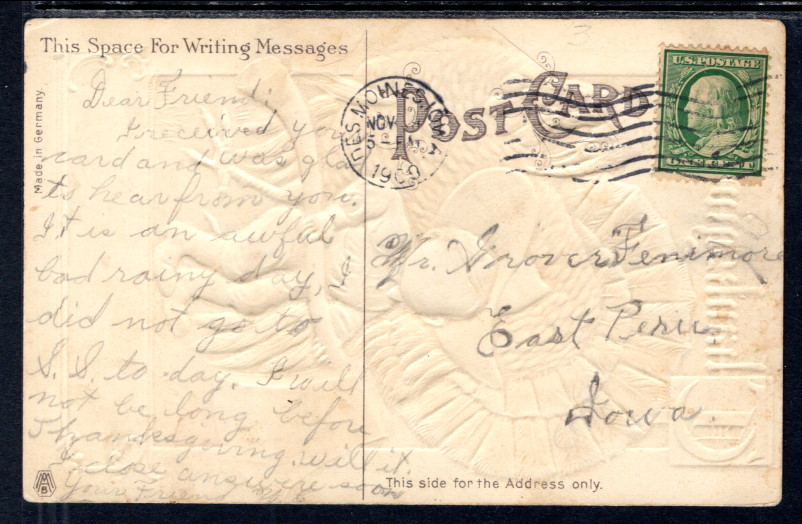 This Space For Writing Messages
Made in Germany.
Dear Friend:
I received your
card and was glad
to hear from you.
It is an awful
bad rainy day,
did not go to
S. S. to day. I will
not be long before
Thanksgiving will it.
I close answere soon
Your Friend
POST CARD
DES MOINES, IOWA
NOV
1909
U.S. POSTAGE
ONE CENT
Mr. Grover Fenimore
East Peru
Iowa.
This side for the Address only.